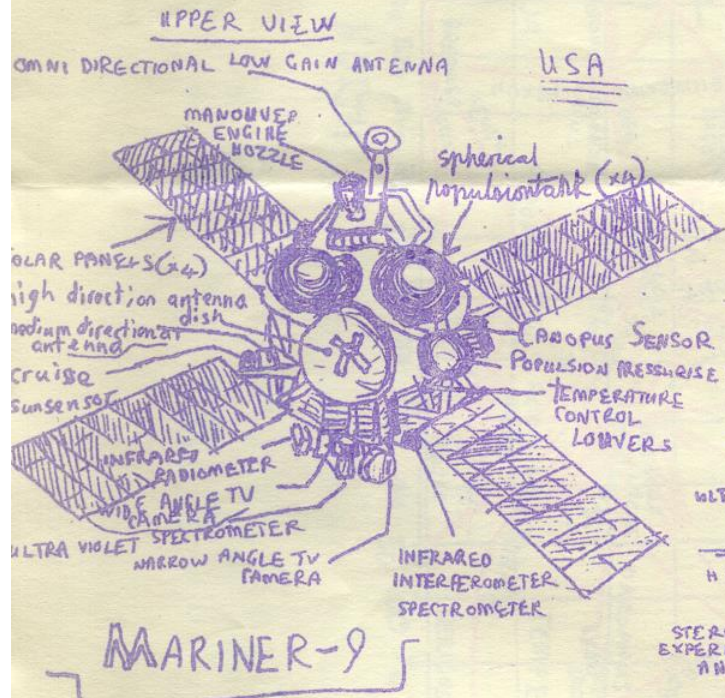 UPPER VIEW
OMNI DIRECTIONAL LOW GAIN ANTENNA
USA
MANOUVER
ENGINE
NOZZLE
spherical
propulsiontank (x4)
OLAR PANELS (x4)
high direction antenna
dish
medium directional
antenna
cruise
sunsensor
CANOPUS SENSOR
POPULSION PRESSURISE
TEMPERATURE
CONTROL
LOUVERS
INFRARED
RADIOMETER
WIDE ANGLE TV
CAMERA
SPECTROMETER
ULTRA VIOLET
NARROW ANGLE TV
CAMERA
INFRARED
INTERFEROMETER
SPECTROMETER
MARINER-9
ULT
H
STER
EXPERI
AN